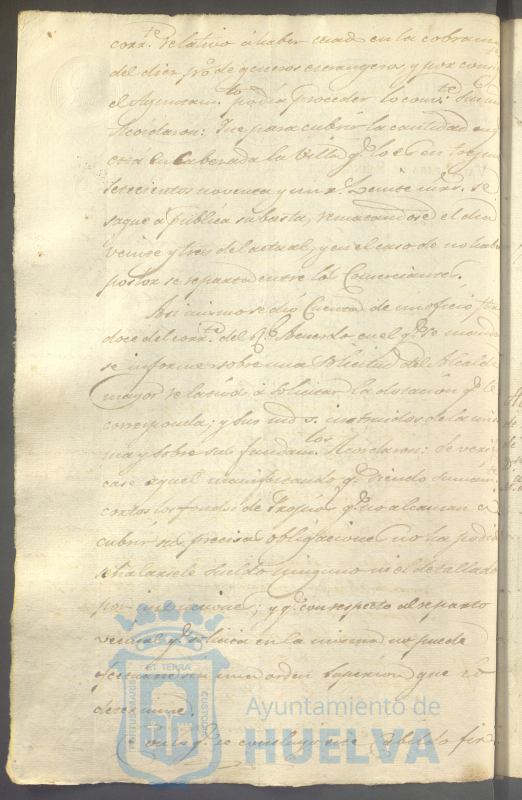 corr.te relativo á haber cesad en la cobran
del diez pr.o de generos estrangeros, y por consig
el Ayuntam.to podrá proceder lo com.te
Acordaron: Que para cubrir la cantidad en q
está encabezada la Villa q.e lo es en
setecientos noventa y un r.s veinte mrs. se
saque a pública subasta, rematandose el dia
veinte y tres del actual, y en el caso de no haber
postor se reparta entre los Comerciantes.
Asi mismo se dió Cuenta de un oficio fha
doce del corr.te del R.l Acuerdo en el q.e se manda
se informe sobre una solicitud del Alcalde
mayor relativa á solicitar la dotacion q.e le
corresponda; y sus mds. instruidos de la mis
ma y sobre sus fundam.tos Acordaron: se veri
case aquel manifestando q.e siendo sumam.te
cortos los fondos de Propios q.e no alcanzan á
cubrir sus precisas obligaciones no ha podido
señalarsele sueldo ninguno ni el detallado
por instruciones; y q.e con respecto al reparto
vecinal q.e solicita en la misma no puede
efectuarse sin una orden superior que lo
determine.
Con lo q.e se concluyó este Cabildo fir
ET TERRÆ
CUSTODIA
Ayuntamiento de
HUELVA